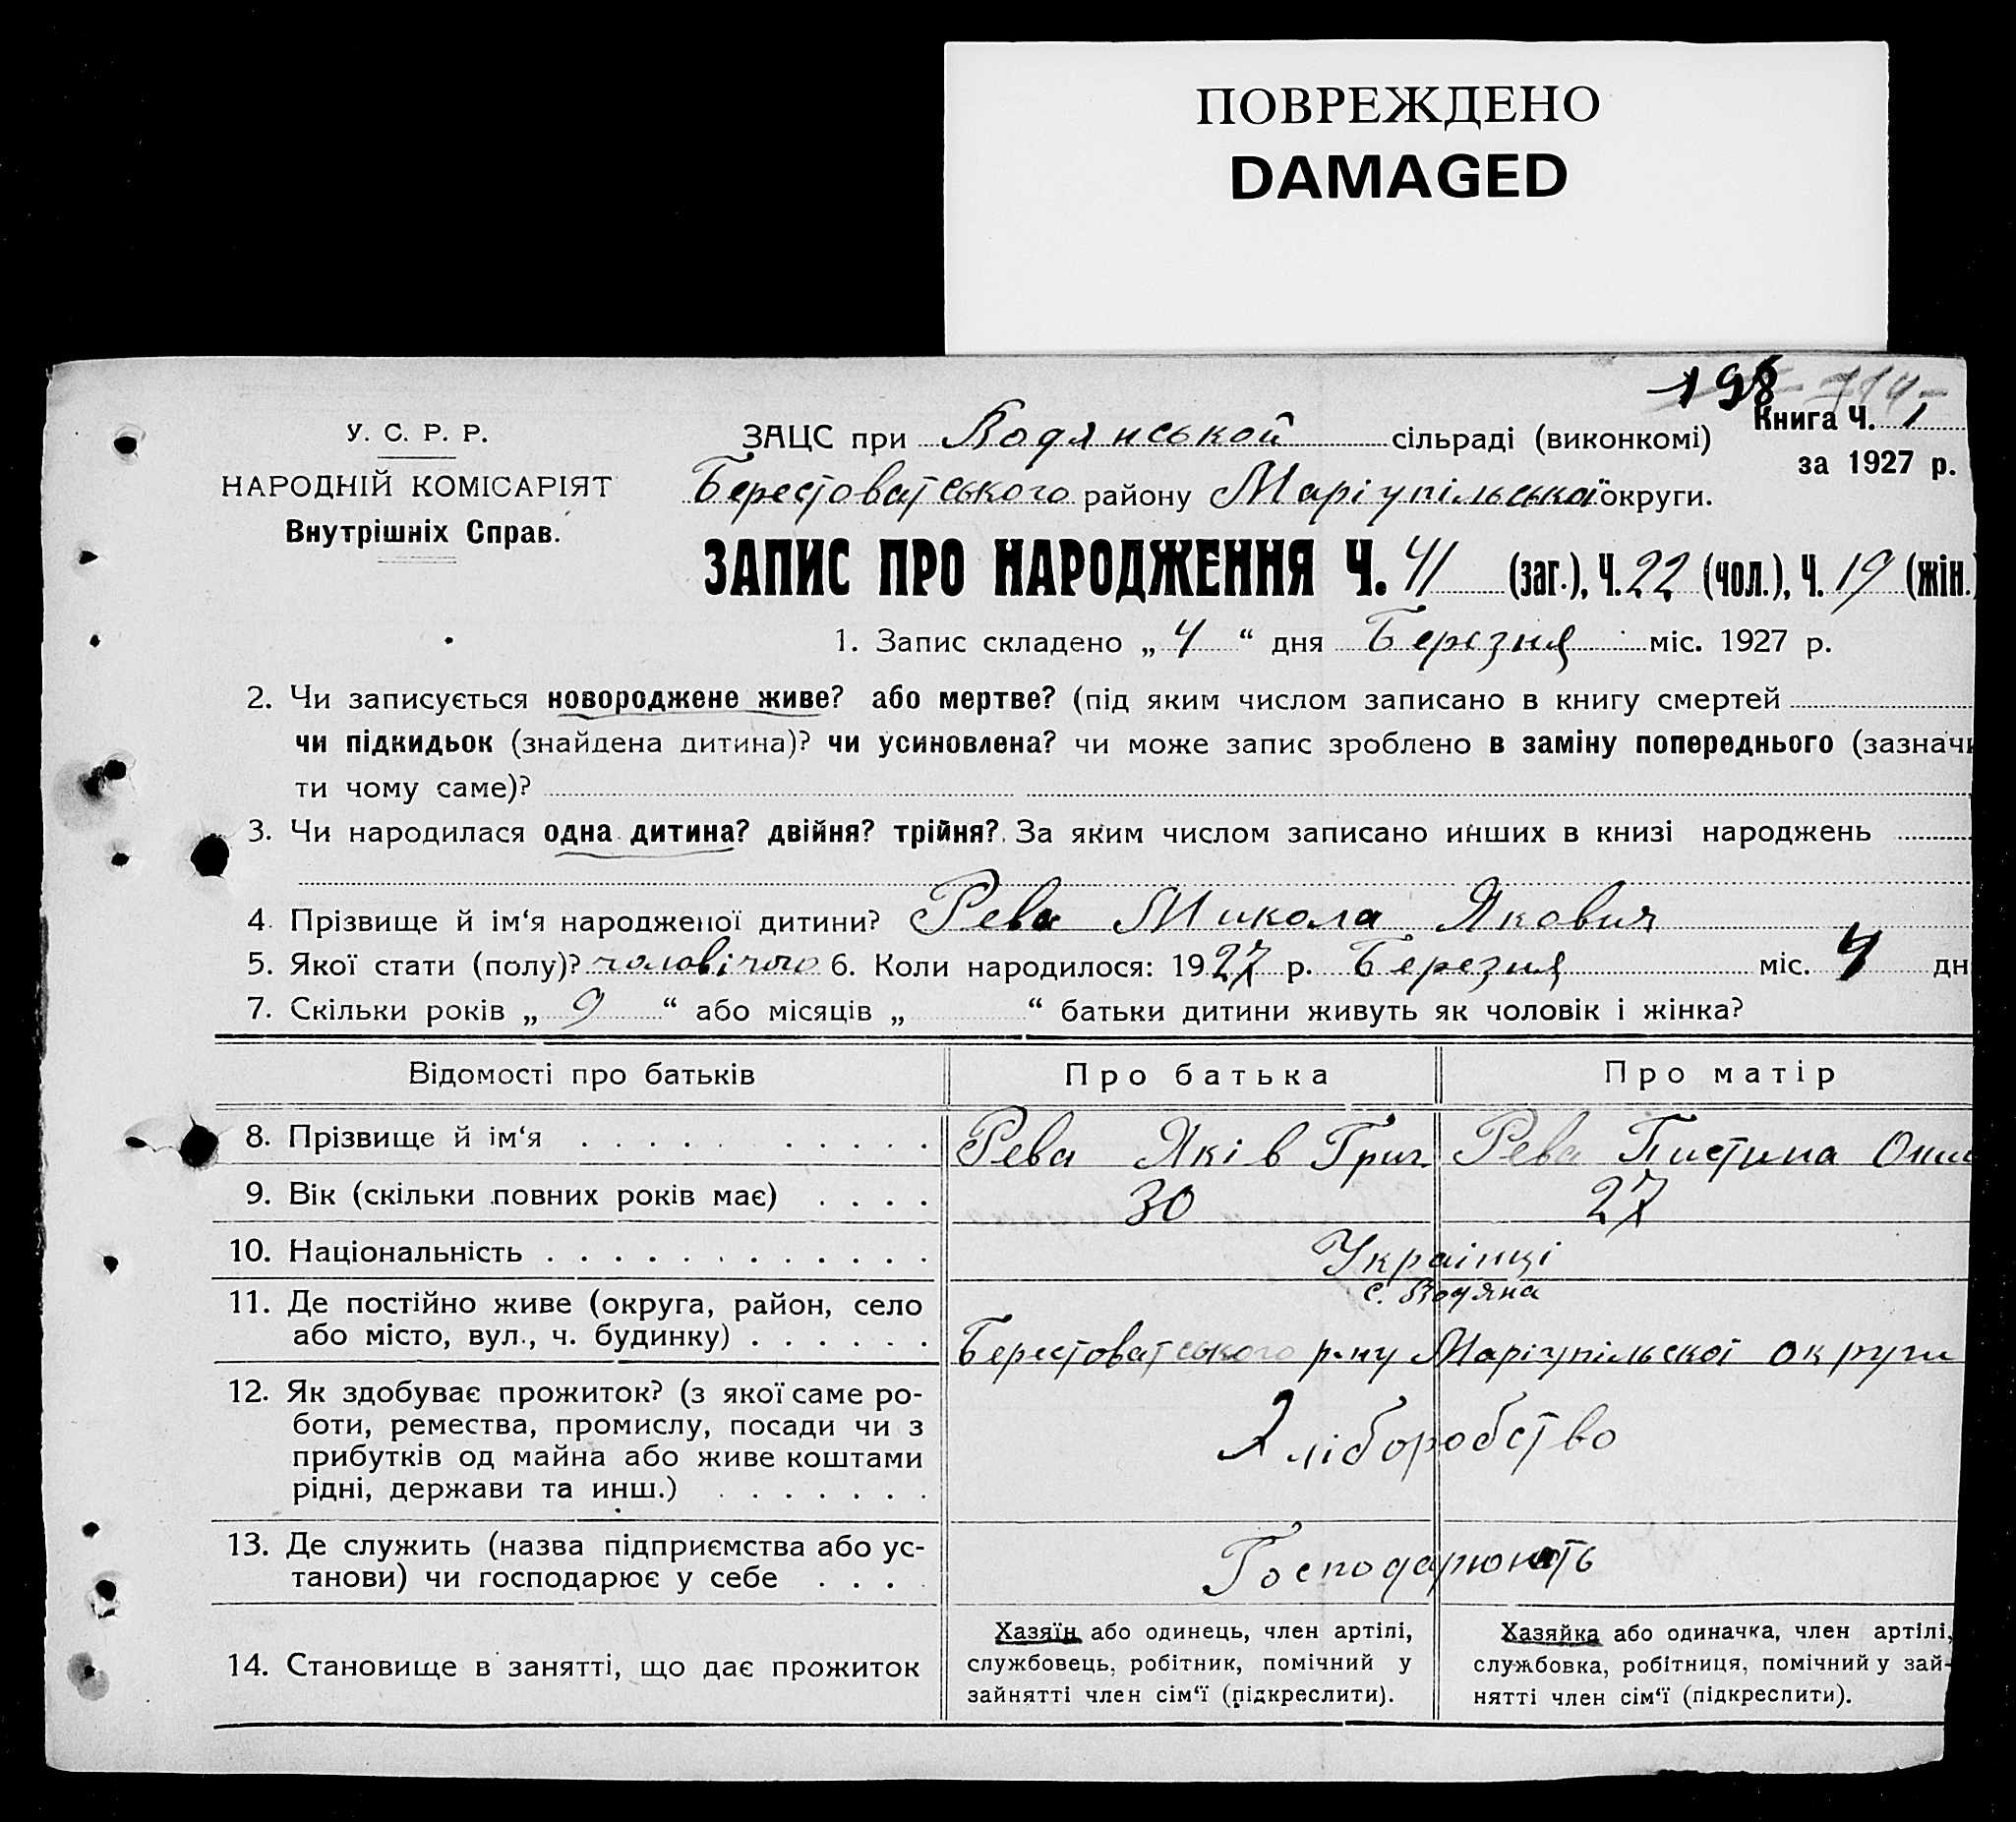 ПОВРЕЖДЕНО
DAMAGED
198 114
У. С. Р. Р.
НАРОДНІЙ КОМІСАРІЯТ
Внутрішніх Справ.
Книга Ч. 1
за 1927 р.
ЗАЦС при Водянськой сільраді (виконкомі)
Берестоватського району Маріупільської округи.
ЗАПИС ПРО НАРОДЖЕННЯ Ч. 41 (заг.), Ч. 22 (чол.), Ч. 19 (жін.)
1. Запис складено „ 4 “ дня Березня міс. 1927 р.
2. Чи записується новороджене живе? або мертве? (під яким числом записано в книгу смертей
чи підкидьок (знайдена дитина)? чи усиновлена? чи може запис зроблено в заміну попереднього (зазначи
ти чому саме)?
3. Чи народилася одна дитина? двійня? трійня? За яким числом записано инших в книзі народжень
4. Прізвище й ім‘я народженої дитини? Рева Микола Якович
5. Якої стати (полу)? чоловічого 6. Коли народилося: 1927 р. Березня міс. 4 дн
7. Скільки років „ 9 “ або місяців „ “ батьки дитини живуть як чоловік і жінка?
Відомості про батьків Про батька Про матір
8. Прізвище й ім‘я Рева Яків Григ. Рева Пистина
9. Вік (скільки повних років має) 30 27
10. Національність Українці
с. Водяна
11. Де постійно живе (округа, район, село
або місто, вул., ч. будинку) Берестоватського р-ну Маріупільскої округи
12. Як здобуває прожиток? (з якої саме ро-
боти, ремества, промислу, посади чи з
прибутків од майна або живе коштами
рідні, держави та инш.)
Хліборобство
13. Де служить (назва підприємства або ус-
танови) чи господарює у себе
Господарюють
14. Становище в занятті, що дає прожиток
Хазяїн або одинець, член артілі,
службовець, робітник, помічний у
зайнятті член сім‘ї (підкреслити).
Хазяйка або одиначка, член артілі,
службовка, робітниця, помічний у зай-
нятті член сім‘ї (підкреслити).